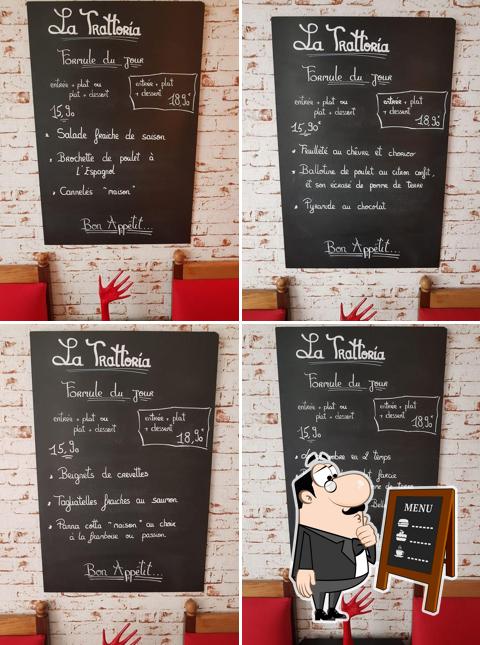 La Trattoria
Formule du jour
entrée + plat ou
plat + dessert
15,90
entrée + plat
+ dessert
18,90€
Salade fraîche de saison
Brochette de poulet à
l'Espagnol
Cannelés "maison"
Bon Appétit...
La Trattoria
Formule du jour
entrée + plat ou
plat + dessert
15,90€
entrée + plat
+ dessert
18,90€
Feuilleté au chèvre et chorizo
Ballotine de poulet au citron confit,
et son écrasé de pomme de terre
Pyramide au chocolat
Bon Appétit...
La Trattoria
Formule du jour
entrée + plat ou
plat + dessert
15,90
entrée + plat
+ dessert
18,90€
Beignets de crevettes
Tagliatelles fraîches au saumon
Panna cotta "maison" au choix
à la framboise ou passion
Bon Appétit...
La Trattoria
Formule du jour
entrée + plat ou
plat + dessert
15,90
entrée + plat
+ dessert
18,90€
en 2 temps
farce
de terre
MENU